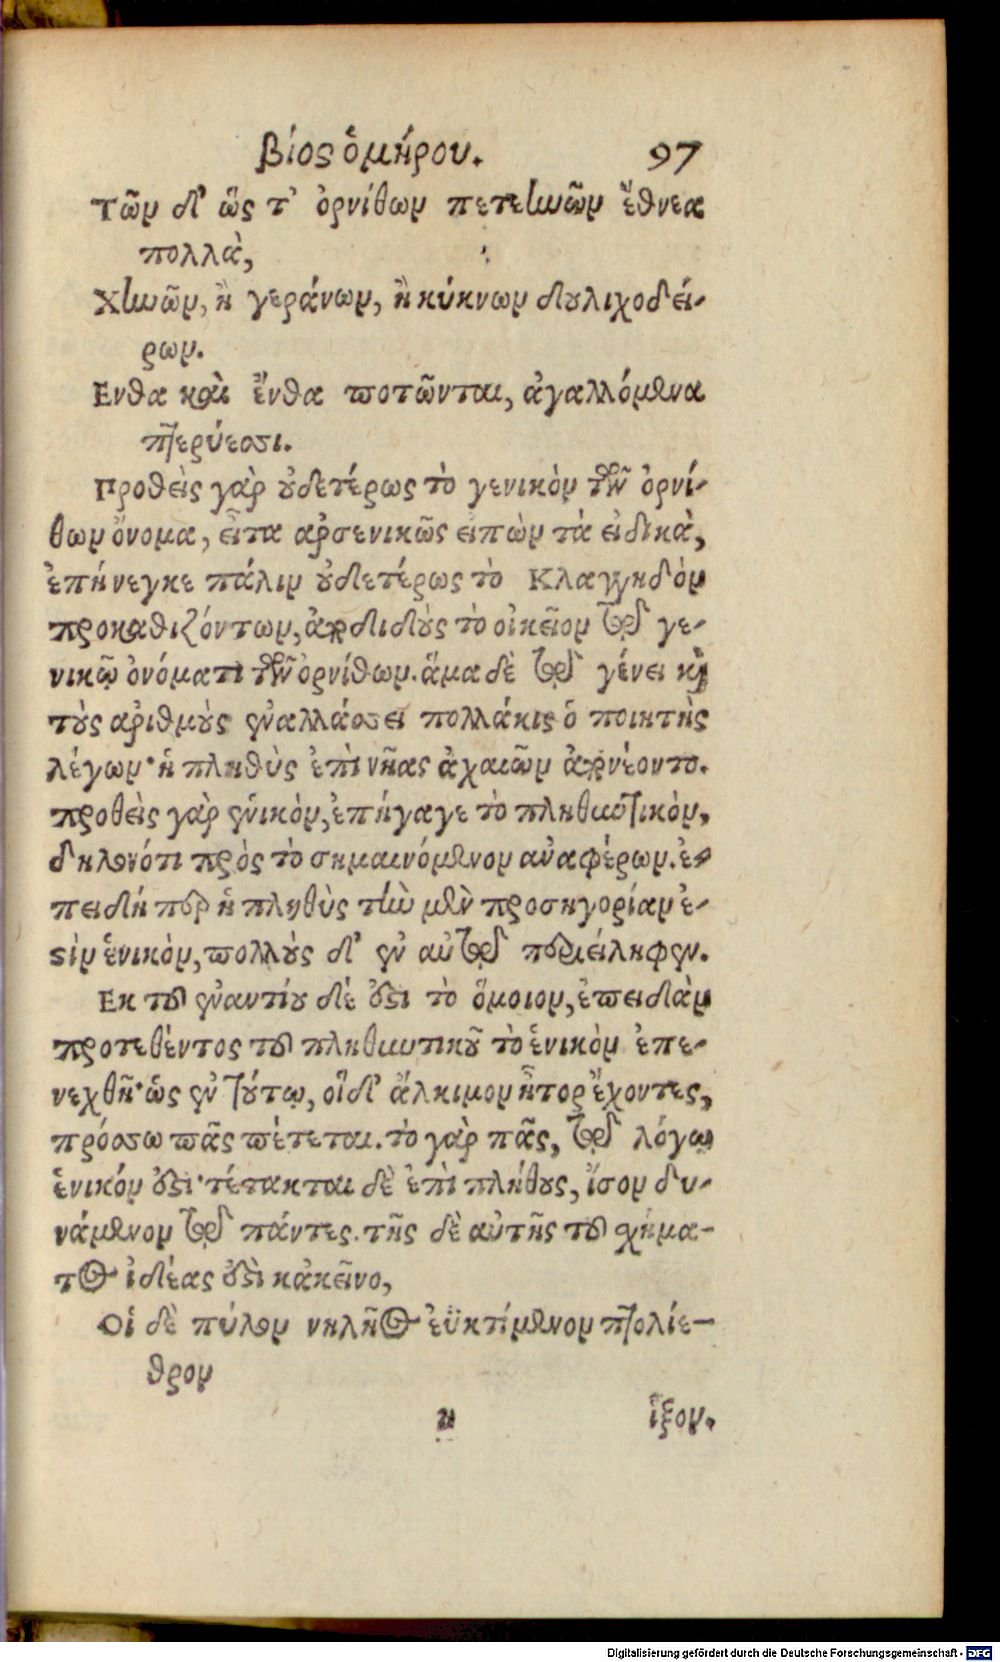 βίος ὁμήρου. 97
Τῶν δ' ὥς τ' ὀρνίθων πετεηνῶν ἔθνεα
πολλὰ,
Χηνῶν, ἢ γεράνων, ἢ κύκνων δουλιχοδεί-
ρων.
Ενθα καὶ ἔνθα ποτῶνται, ἀγαλλόμενα
πτερύεσσι.
Προθεὶς γὰρ οὐδετέρως τὸ γενικὸν τῶν ὀρνί-
θων ὄνομα, εἶτα ἀρσενικῶς εἰπὼν τὰ εἰδικὰ,
ἐπήνεγκε πάλιν οὐδετέρως τὸ Κλαγγηδὸν
προκαθιζόντων, ἀποδιδοὺς τὸ οἰκεῖον τῷ γε-
νικῷ ὀνόματι τῶν ὀρνίθων. ἅμα δὲ τῷ γένει καὶ
τοὺς ἀριθμοὺς ἐναλλάσσει πολλάκις ὁ ποιητὴς
λέγων· ἡ πληθὺς ἐπὶ νῆας ἀχαιῶν ἀπονέοντο.
προθεὶς γὰρ ἑνικὸν, ἐπήγαγε τὸ πληθυντικὸν,
δηλονότι πρὸς τὸ σημαινόμενον ἀναφέρων. ἐ-
πειδήπερ ἡ πληθὺς τὴν μὲν προσηγορίαν ἐ-
στὶν ἑνικὸν, πολλοὺς δ' ἐν αὑτῷ περιείληφεν.
Εκ τοῦ ἐναντίου δέ ἐστι τὸ ὅμοιον, ἐπειδὰν
προτεθέντος τοῦ πληθυντικοῦ τὸ ἑνικὸν ἐπε-
νεχθῇ· ὡς ἐν τούτῳ, οἳ δ' ἄλκιμον ἦτορ ἔχοντες,
πρόσσω πᾶς πέτεται. τὸ γὰρ πᾶς, τῷ λόγῳ
ἑνικόν ἐστι· τέτακται δὲ ἐπὶ πλήθους, ἴσον δυ-
νάμενον τῷ πάντες. τῆς δὲ αὐτῆς τοῦ σχήμα-
τος ἰδέας ἐστὶ κἀκεῖνο,
Οἱ δὲ πύλον νηλῆος ἐϋκτίμενον πτολίε-
θρον
n ἷξον.
Digitalisierung gefördert durch die Deutsche Forschungsgemeinschaft - DFG